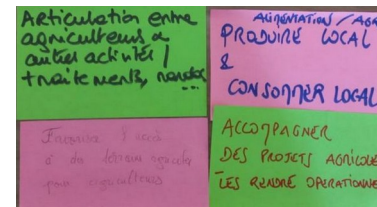 Articulation entre
agriculteurs &
autres activités /
traitements,
...
ALIMENTATION / AGR
PRODUIRE LOCAL
&
CONSOMMER LOCAL
Favoriser l'accès
à des
pour agriculteurs
ACCOMPAGNER
DES PROJETS AGRICOLE
LES RENDRE OPERATIONNE